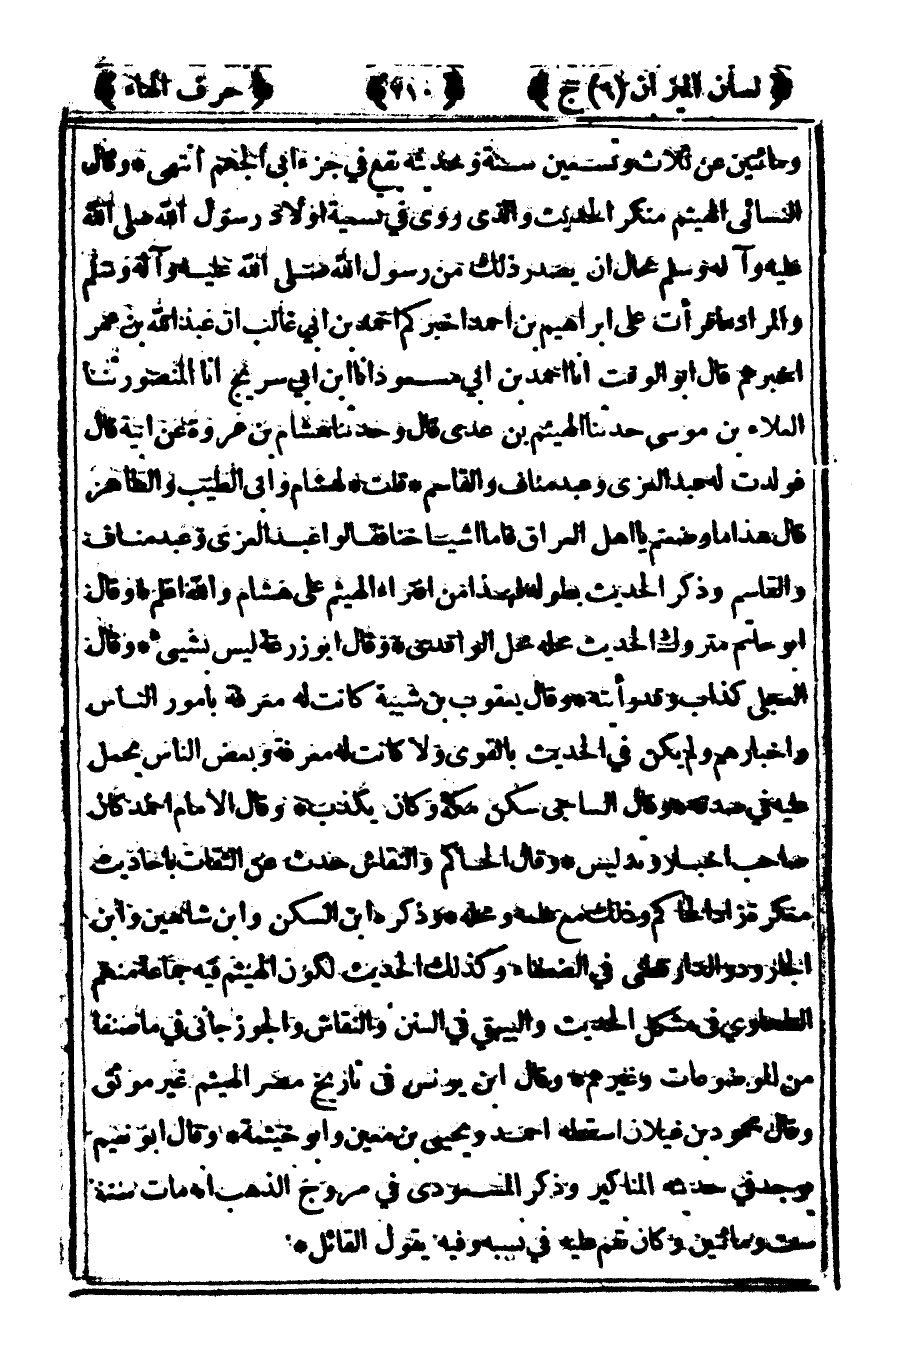 ﴿ لسان الميزان (٦) ج ﴾ ﴿٢١٠﴾ ﴿ حرف الهاء ﴾
ومائتين عن ثلاث وتسعين سنة وحديثه يقع في جزء ابى الجهم انتهى * وقال
النسائى الهيثم منكر الحديث والذى روى في تسمية اولاد رسول الله صلى الله
عليه وآله وسلم محال ان يصدر ذلك من رسول الله صلى الله عليه وآله وسلم
والمراد ما قرأت على ابراهيم بن احمد اخبركم احمد بن ابي غالب ان عبد الله بن عمر
اخبرهم قال انا ابو الوقت انا احمد بن ابي مسعود انا ابن ابي سريج انا المنصور ثنا
العلاء بن موسى حدثنا الهيثم بن عدى قال وحدثنا هشام بن عروة عن ابيه قال
فولدت له عبد العزى وعبد مناف والقاسم * قلت * لهشام واين الطيب والطاهر
قال هذا ما وضعتم يا اهل العراق فاما اشياخنا فقالوا عبد العزى وعبد مناف
والقاسم وذكر الحديث بطوله فهذا من افتراء الهيثم على هشام والله اعلم * وقال
ابو حاتم متروك الحديث محله محل الواقدى * وقال ابو زرعة ليس بشيئ * وقال
العجلى كذاب وقد رأيته * وقال يعقوب بن شيبة كانت له معرفة بامور الناس
واخبارهم ولم يكن في الحديث بالقوى ولا كانت له معرفة وبعض الناس يحمل
عليه في صدقه * وقال الساجى سكن مكة وكان يكذب * وقال الامام احمد كان
صاحب اخبار وتدليس * وقال الحاكم والنقاش حدث عن الثقات باحاديث
منكرة زاد الحاكم وذلك مع علمه ومحله * وذكره ابن السكن وابن شاهين وابن
الجارود والدارقطنى في الضعفاء وكذلك الحديث لكون الهيثم فيه جماعة منهم
الطحاوي فى مشكل الحديث والبيهقي في السنن والنقاش والجوزجانى في ما صنفا
من الموضوعات وغيرهم * وقال ابن يونس فى تاريخ مصر الهيثم غير موثق
وقال محمود بن غيلان اسقطه احمد ويحيى بن معين وابو خيثمة * وقال ابو نعيم
يوجد في حديثه المناكير وذكر المسعودى في مروج الذهب انه مات سنة
ست ومائتين وكان نقم عليه في نسبه وفيه يقول القائل *